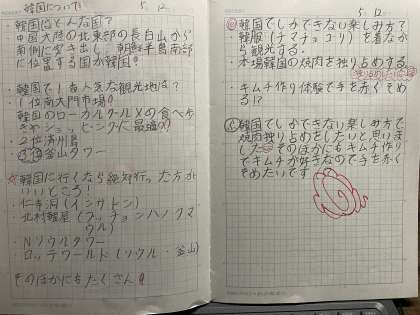 韓国について 5.12
・韓国はどんな国?
中国大陸の北東部の長白山から
南側に突き出し、朝鮮半島南部
に位置する国が韓国!
・韓国で1番人気な観光地は?
・1位南大門市場!
韓国のローカルグルメの食べ歩
きやショッピングに最適!
・2位済州島
・3位釜山タワー
☆韓国に行くなら絶対行った方が
いいところ!
・仁寺洞(インサドン)
・北村韓屋(プッチョンハノクマ
ウル)
・Nソウルタワー
・ロッテワールド(ソウル・釜山)
そのほかにもたくさん!
5.12
韓国でしかできない楽しみ方?
・韓服(チマチョゴリ)を着なが
ら観光する。
・本場韓国の焼肉を独り占めする
・キムチ作り体験で手を赤くそめ
る!?
韓国でしかできない楽しみ方で
焼肉独り占めをしたいと思いま
した。そのほかにもキムチ作り
でキムチが好きなので手を赤く
そめたいです